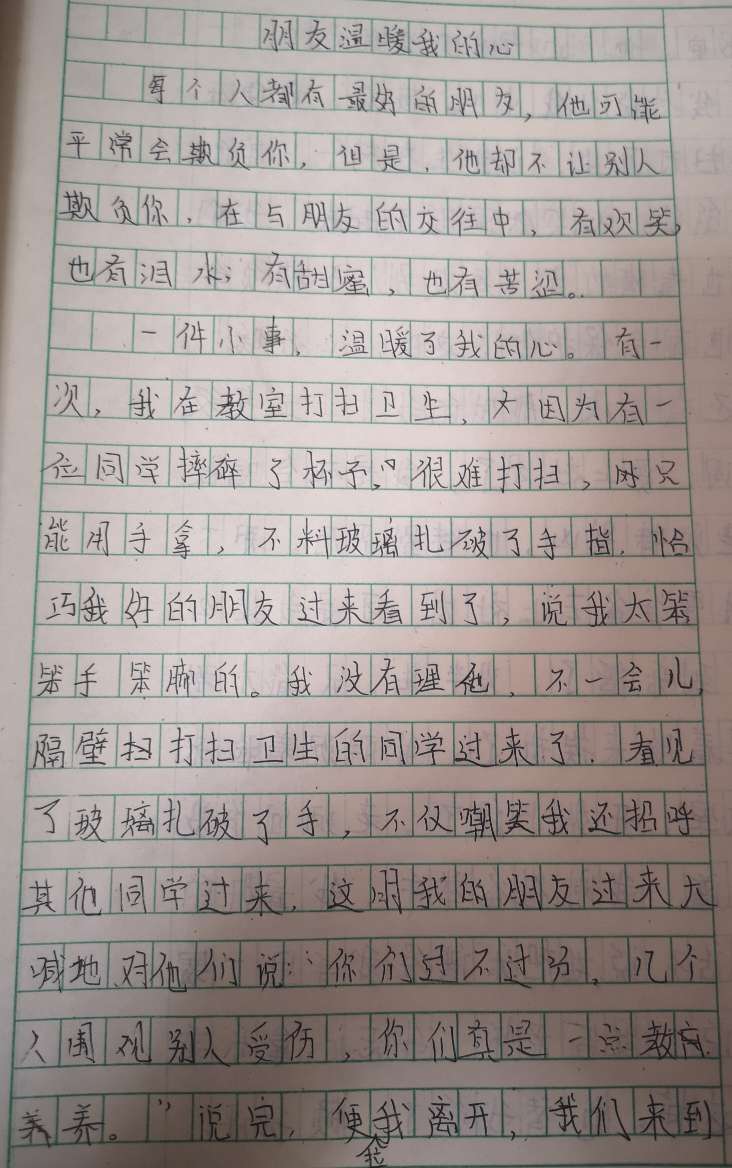 朋友温暖我的心
每个人都有最好的朋友,他可能
平常会欺负你,但是,他却不让别人
欺负你,在与朋友的交往中,有欢笑,
也有泪水;有甜蜜,也有苦涩。
一件小事,温暖了我的心。有一
次,我在教室打扫卫生,因为有一
位同学摔碎了杯子,很难打扫,只
能用手拿,不料玻璃扎破了手指,恰
巧我好的朋友过来看到了,说我太笨
笨手笨脚的。我没有理他,不一会儿,
隔壁打扫卫生的同学过来了,看见
了玻璃扎破了手,不仅嘲笑我还招呼
其他同学过来,这时我的朋友过来大
喊地对他们说:“你们过不过分,几个
人围观别人受伤,你们真是一点教
养。”说完,便我离开,我们来到